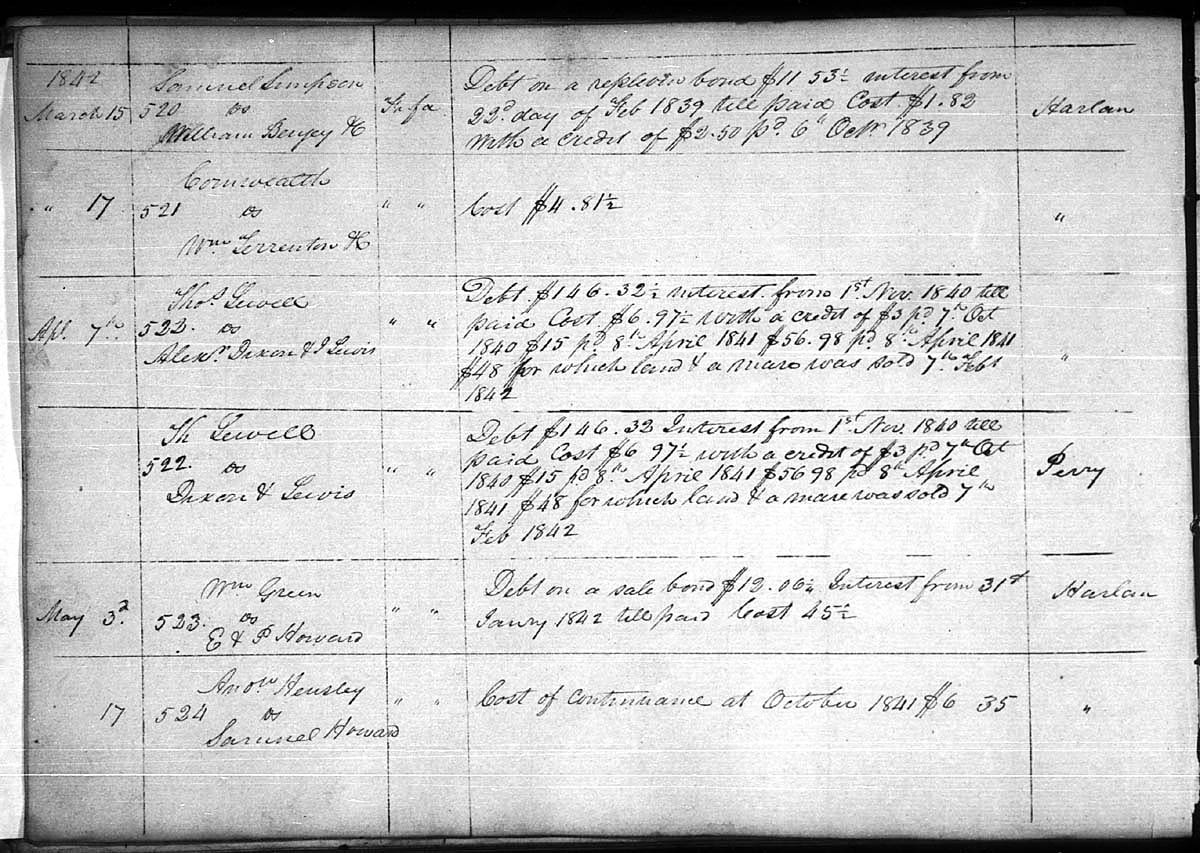 1842 Samuel Simpson Debt on a replevin bond $11 53½ interest from
March 15 520 vs Fi fa 22d day of Feb 1839 till paid Cost $1.82 Harlan
William &C With a credit of $2.50 pd. 6th Octr 1839
Comwealth
" 17 521 vs " " Cost $4.81½ "
Wm. &C
Thos Debt $146.32½ interest from 1st Nov. 1840 till
Apl. 7th 522. vs " " paid Cost $6.97½ with a credit of $3 pd 7th Oct
Alexr Dixon & J Lewis 1840 $15 pd 8th April 1841 $56.98 pd 8th April 1841
$48 for which land & a mare was sold 7th Feb "
1842
Th Debt $146.32 Interest from 1st Nov. 1840 till
522. vs " " paid Cost $6 97½ with a credit of $3 pd 7th Oct Perry
Dixon & Lewis 1840 $15 pd 8th April 1841 $56 98 pd 8th April
1841 $48 for which land & a mare was sold 7th
Feb 1842
Wm Green Debt on a sale bond $12.06¼ Interest from 31st Harlan
May 3d. 523. vs " " Janry 1842 till paid Cost 45½
E & P Howard
Andw Hensley " " Cost of continuance at October 1841 $6 35
17 524 vs "
Samuel Howard